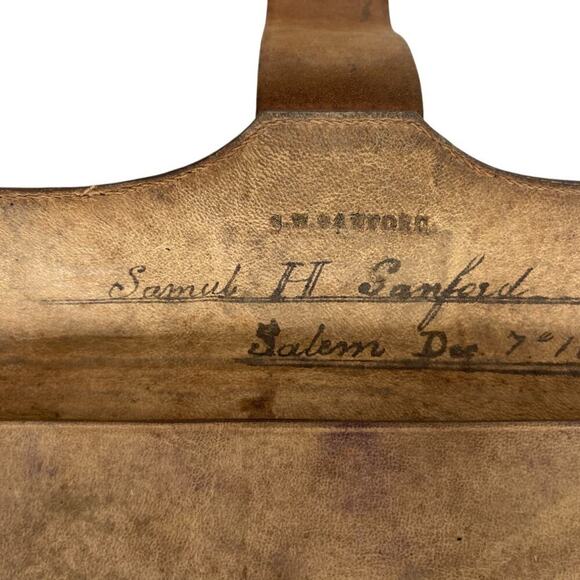 S.W.SANFORD.
Samuel H Sanford
Salem Dec 7" 18